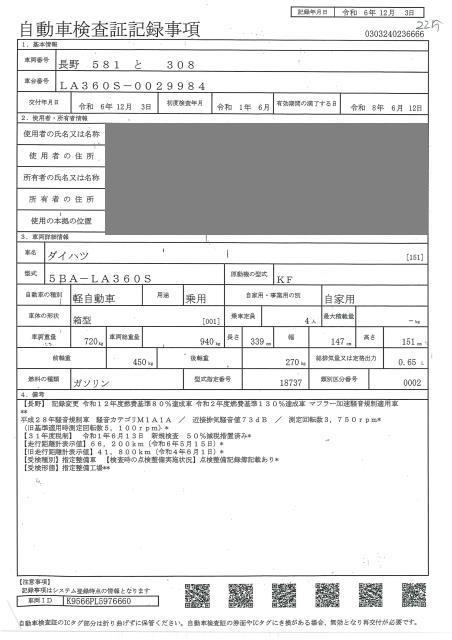 記録年月日 令和 6年12月 3日
自動車検査証記録事項
0303240236666
1．基本情報
車両番号 長野 581 と 308
車台番号 LA360S-0029984
交付年月日 令和 6年12月 3日 初度検査年月 令和 1年 6月 有効期間の満了する日 令和 8年 6月 12日
2．使用者・所有者情報
使用者の氏名又は名称
使用者の住所
所有者の氏名又は名称
所有者の住所
使用の本拠の位置
3．車両詳細情報
車名 ダイハツ [151]
型式 5BA-LA360S 原動機の型式 KF
自動車の種別 軽自動車 用途 乗用 自家用・事業用の別 自家用
車体の形状 箱型 [001] 乗車定員 4人 最大積載量 -kg
車両重量 720kg 車両総重量 940kg 長さ 339cm 幅 147cm 高さ 151cm
前軸重 450kg 後軸重 270kg 総排気量又は定格出力 0.65 L
燃料の種類 ガソリン 型式指定番号 18737 類別区分番号 0002
4．備考
【長野】記録変更 令和12年度燃費基準80％達成車 令和2年度燃費基準130％達成車 マフラー加速騒音規制適用車
**
平成28年騒音規制車 騒音カテゴリM1A1A ／ 近接排気騒音値73dB ／ 測定回転数3，750rpm*
（旧基準適用時測定回転数5，100rpm）*
【31年度税制】 令和1年6月13日 新規検査 50％減税措置済み*
【走行距離計表示値】66，200km（令和6年5月15日）*
【旧走行距離計表示値】41，800km（令和4年6月1日）*
【受検種別】指定整備車 【検査時の点検整備実施状況】点検整備記録簿記載あり*
【受検形態】指定整備工場**
【注意事項】
記録事項はシステム登録時点の情報となります
車両ID K9566PL5976660
自動車検査証のICタグ部分は折り曲げずに保管ください。自動車検査証の券面やICタグにき損がある場合、無効となり再交付が必要です。